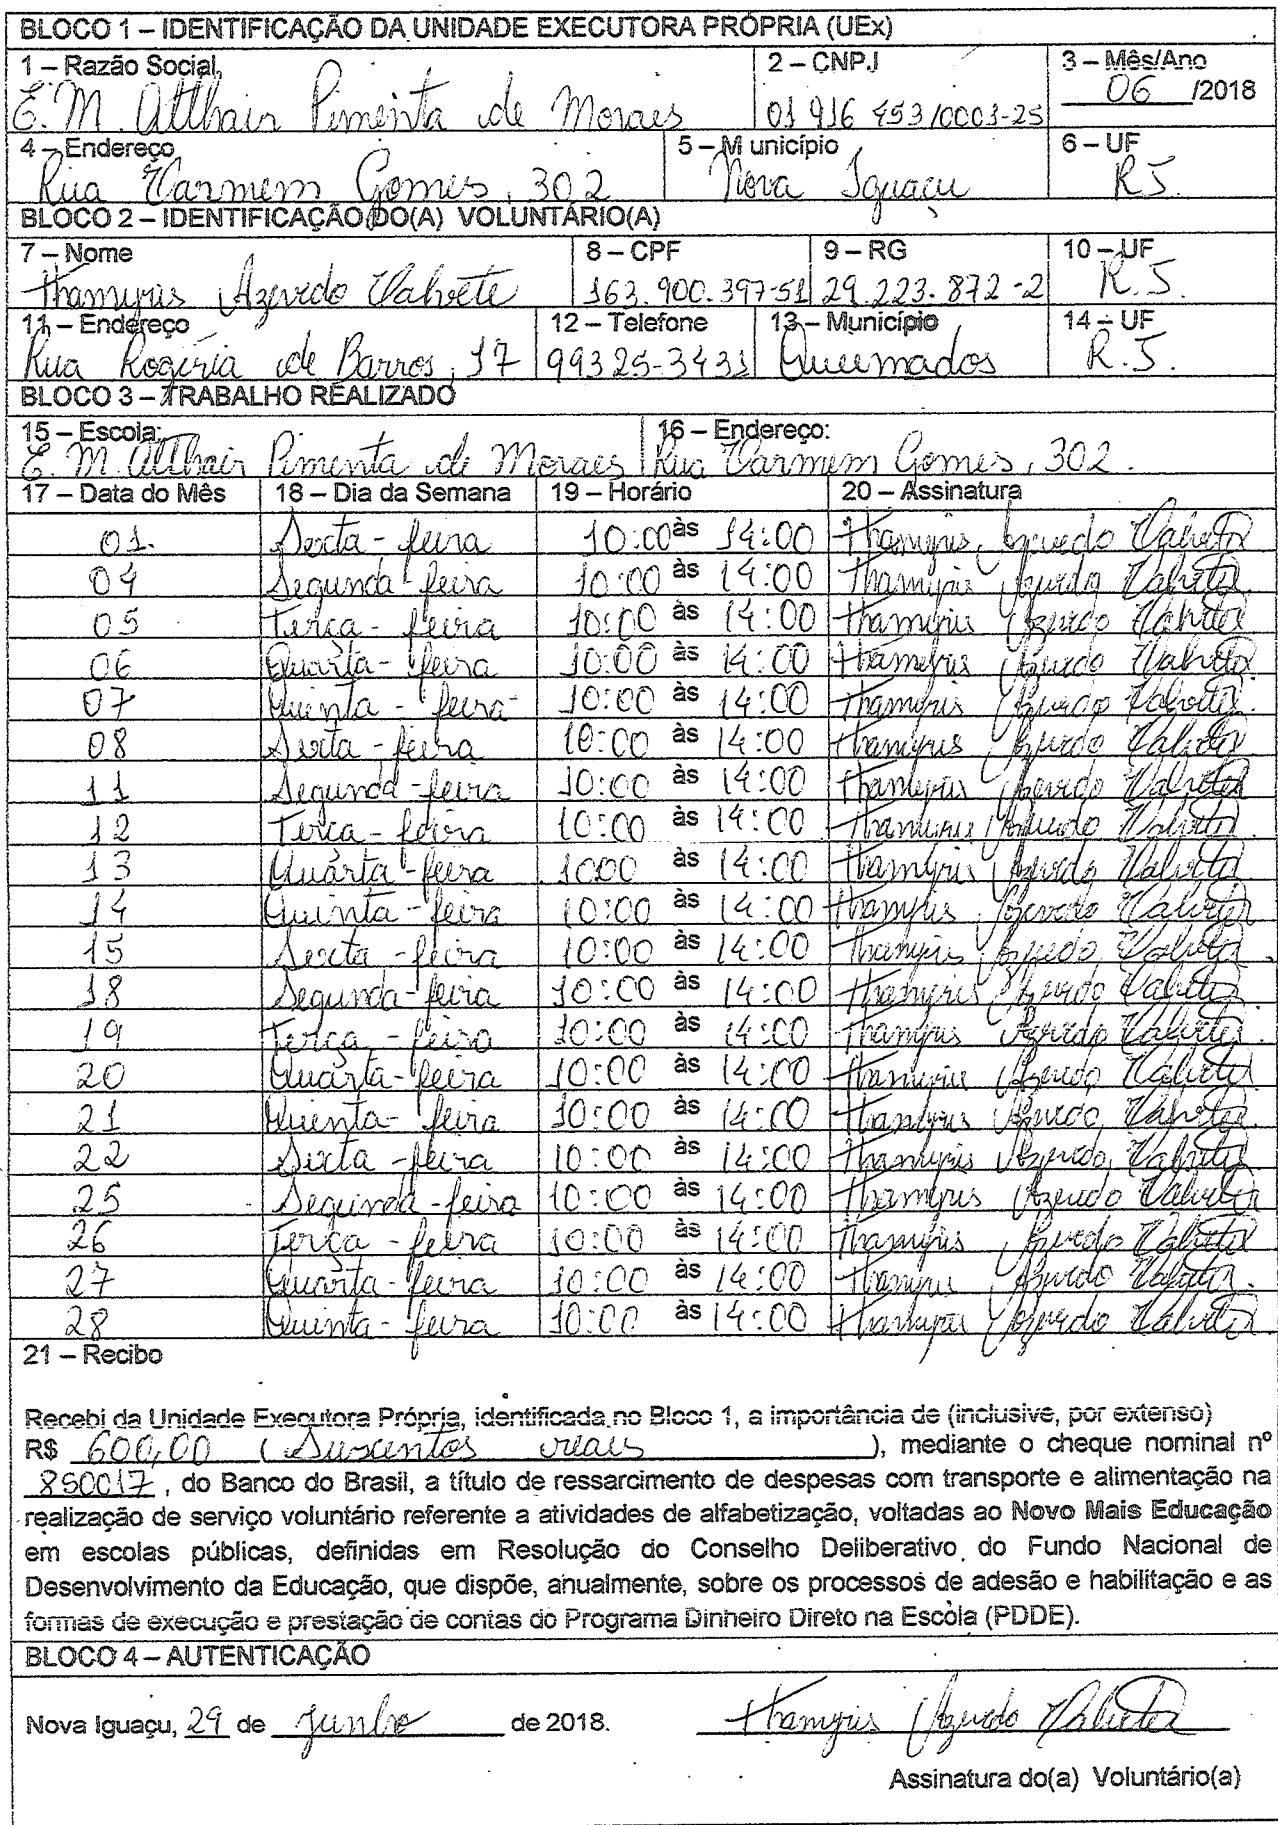 BLOCO 1 – IDENTIFICAÇÃO DA UNIDADE EXECUTORA PRÓPRIA (UEx)
1 – Razão Social, 2 – CNPJ 3 – Mês/Ano
E. M. Althair Pimenta de Moraes 01 916 453/0001-25 06 /2018
4 – Endereço 5 – M unicípio 6 – UF
Rua Carmem Gomes, 302 Nova Iguaçu RJ.
BLOCO 2 – IDENTIFICAÇÃO DO(A) VOLUNTÁRIO(A)
7 – Nome 8 – CPF 9 – RG 10 – UF
Thamyris Azevedo 163.900.397-51 29.223.872-2 R.J.
11 – Endereço 12 – Telefone 13 – Município 14 – UF
Rua Rogéria de Barros, 17 99325-3431 Queimados R.J.
BLOCO 3 – TRABALHO REALIZADO
15 – Escola: 16 – Endereço:
E. M. Althair Pimenta de Moraes Rua Carmem Gomes, 302.
17 – Data do Mês 18 – Dia da Semana 19 – Horário 20 – Assinatura
01. Sexta-feira 10:00 às 14:00 Thamyris Azevedo
04 Segunda-feira 10:00 às 14:00 Thamyris Azevedo
05 Terça-feira 10:00 às 14:00 Thamyris Azevedo
06 Quarta-feira 10:00 às 14:00 Thamyris Azevedo
07 Quinta-feira 10:00 às 14:00 Thamyris Azevedo
08 Sexta-feira 10:00 às 14:00 Thamyris Azevedo
11 Segunda-feira 10:00 às 14:00 Thamyris Azevedo
12 Terça-feira 10:00 às 14:00 Thamyris Azevedo
13 Quarta-feira 1000 às 14:00 Thamyris Azevedo
14 Quinta-feira 10:00 às 14:00 Thamyris Azevedo
15 Sexta-feira 10:00 às 14:00 Thamyris Azevedo
18 Segunda-feira 10:00 às 14:00 Thamyris Azevedo
19 Terça-feira 10:00 às 14:00 Thamyris Azevedo
20 Quarta-feira 10:00 às 14:00 Thamyris Azevedo
21 Quinta-feira 10:00 às 14:00 Thamyris Azevedo
22 Sexta-feira 10:00 às 14:00 Thamyris Azevedo
25 Segunda-feira 10:00 às 14:00 Thamyris Azevedo
26 Terça-feira 10:00 às 14:00 Thamyris Azevedo
27 Quarta-feira 10:00 às 14:00 Thamyris Azevedo
28 Quinta-feira 10:00 às 14:00 Thamyris Azevedo
21 – Recibo
Recebi da Unidade Executora Própria, identificada no Bloco 1, a importância de (inclusive, por extenso)
R$ 600,00 (Suscentos reais ), mediante o cheque nominal nº
850017, do Banco do Brasil, a título de ressarcimento de despesas com transporte e alimentação na
realização de serviço voluntário referente a atividades de alfabetização, voltadas ao Novo Mais Educação
em escolas públicas, definidas em Resolução do Conselho Deliberativo do Fundo Nacional de
Desenvolvimento da Educação, que dispõe, anualmente, sobre os processos de adesão e habilitação e as
formas de execução e prestação de contas do Programa Dinheiro Direto na Escola (PDDE).
BLOCO 4 – AUTENTICAÇÃO
Nova Iguaçu, 29 de Junho de 2018. Thamyris Azevedo
Assinatura do(a) Voluntário(a)